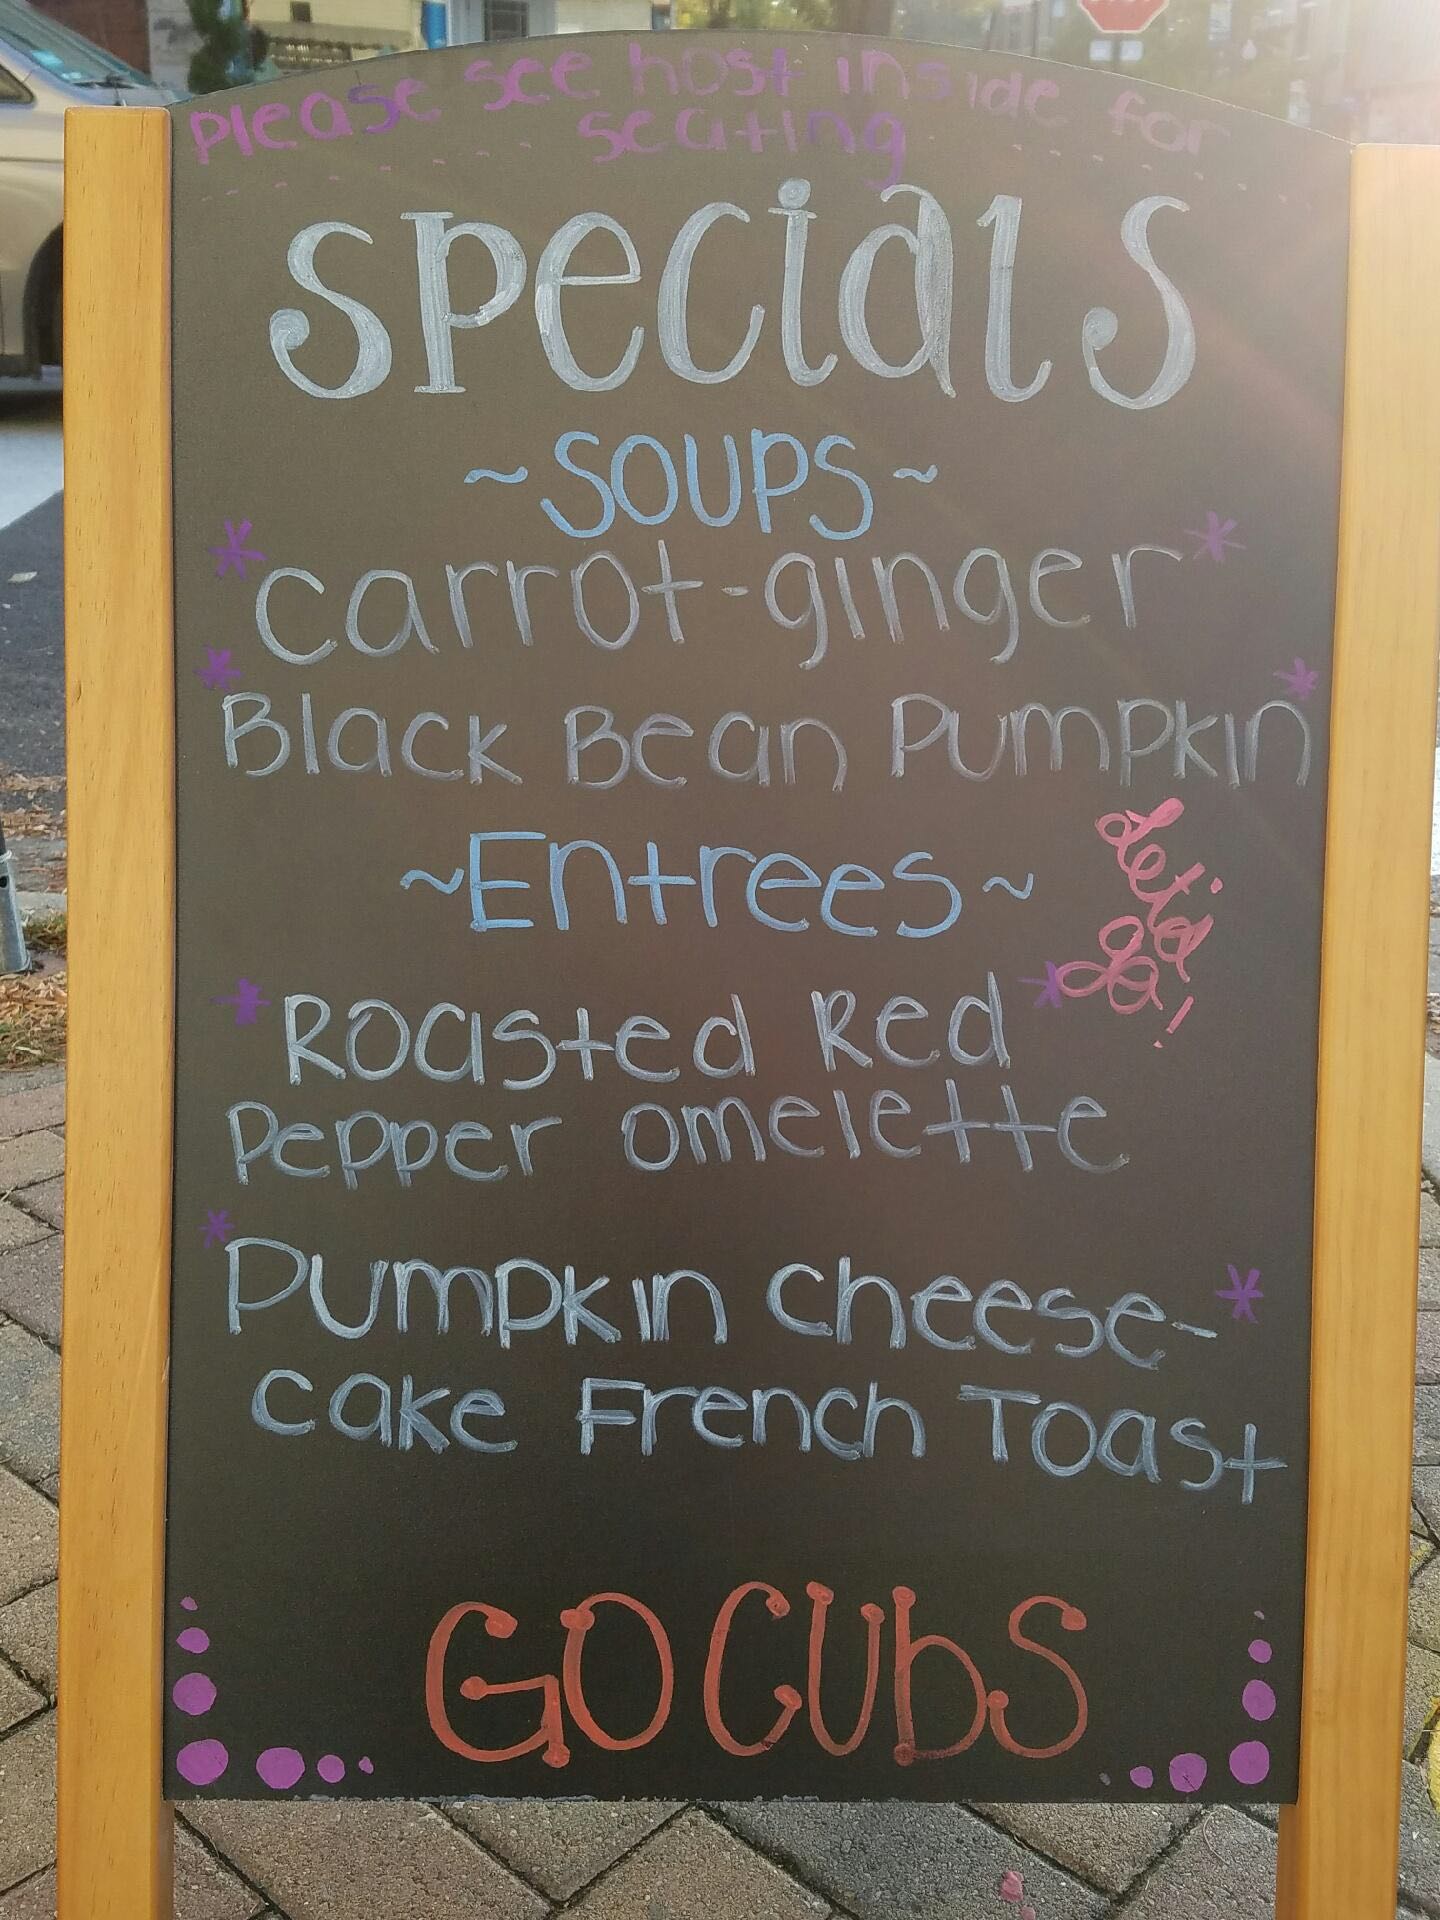 Please see host inside for
seating
Specials
~SOUPS~
*Carrot-ginger*
*Black Bean Pumpkin*
~Entrees~
Let's
go!
*Roasted Red*
Pepper omelette
*Pumpkin cheese-*
cake French Toast
GO CUbS